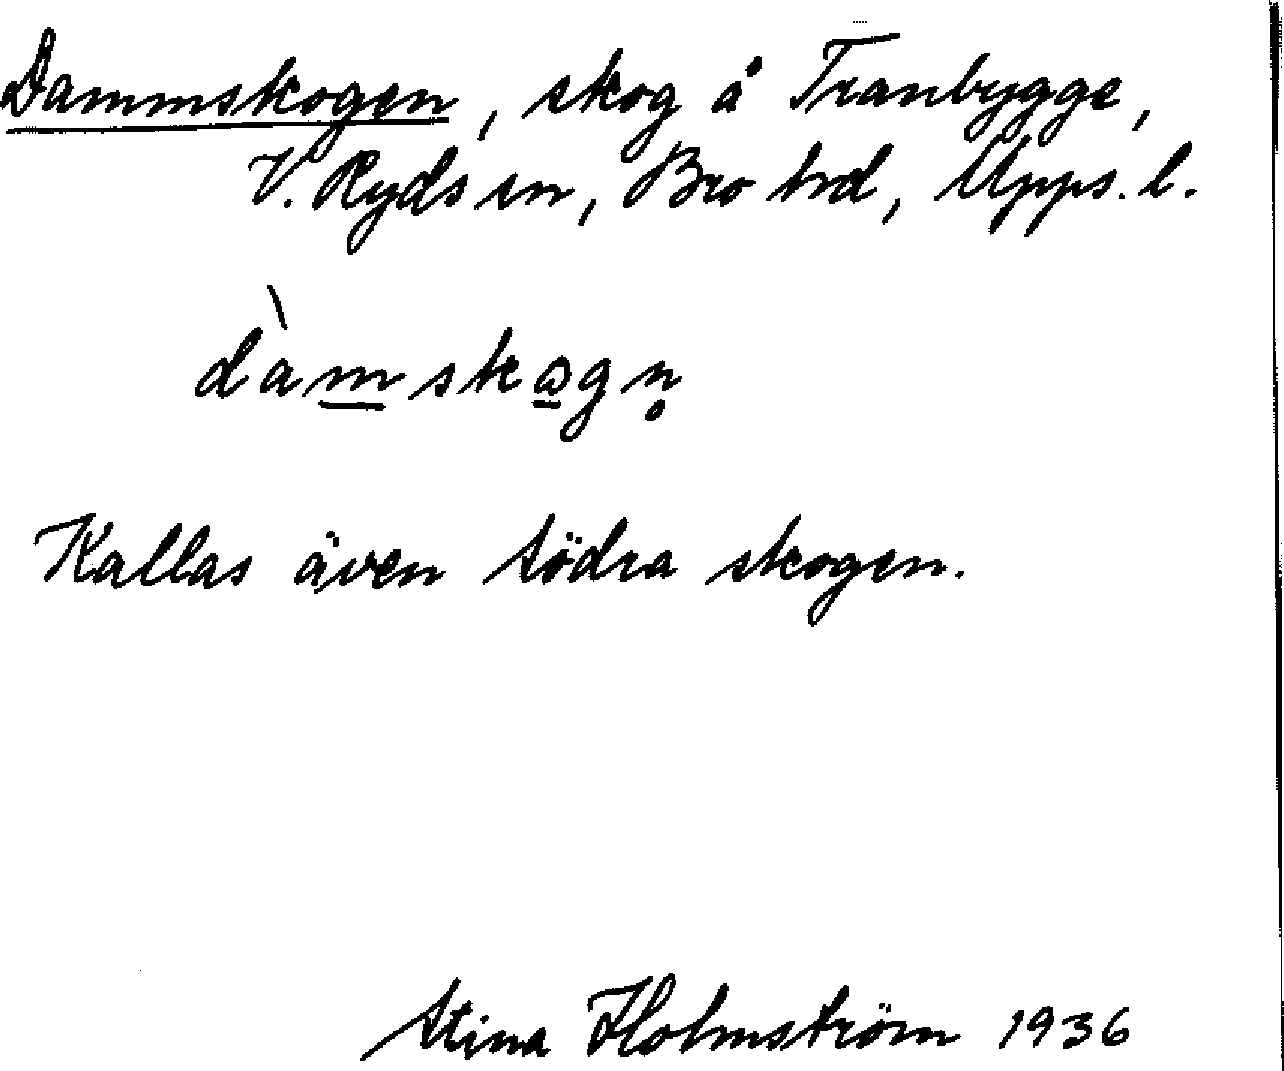 Dammskogen, skog å Tranbygge,
V. Ryds sn, Bro hd, Upps. l.
dàm̲skω̲gn̥
Kallas även Södra skogen.
Stina Holmström 1936